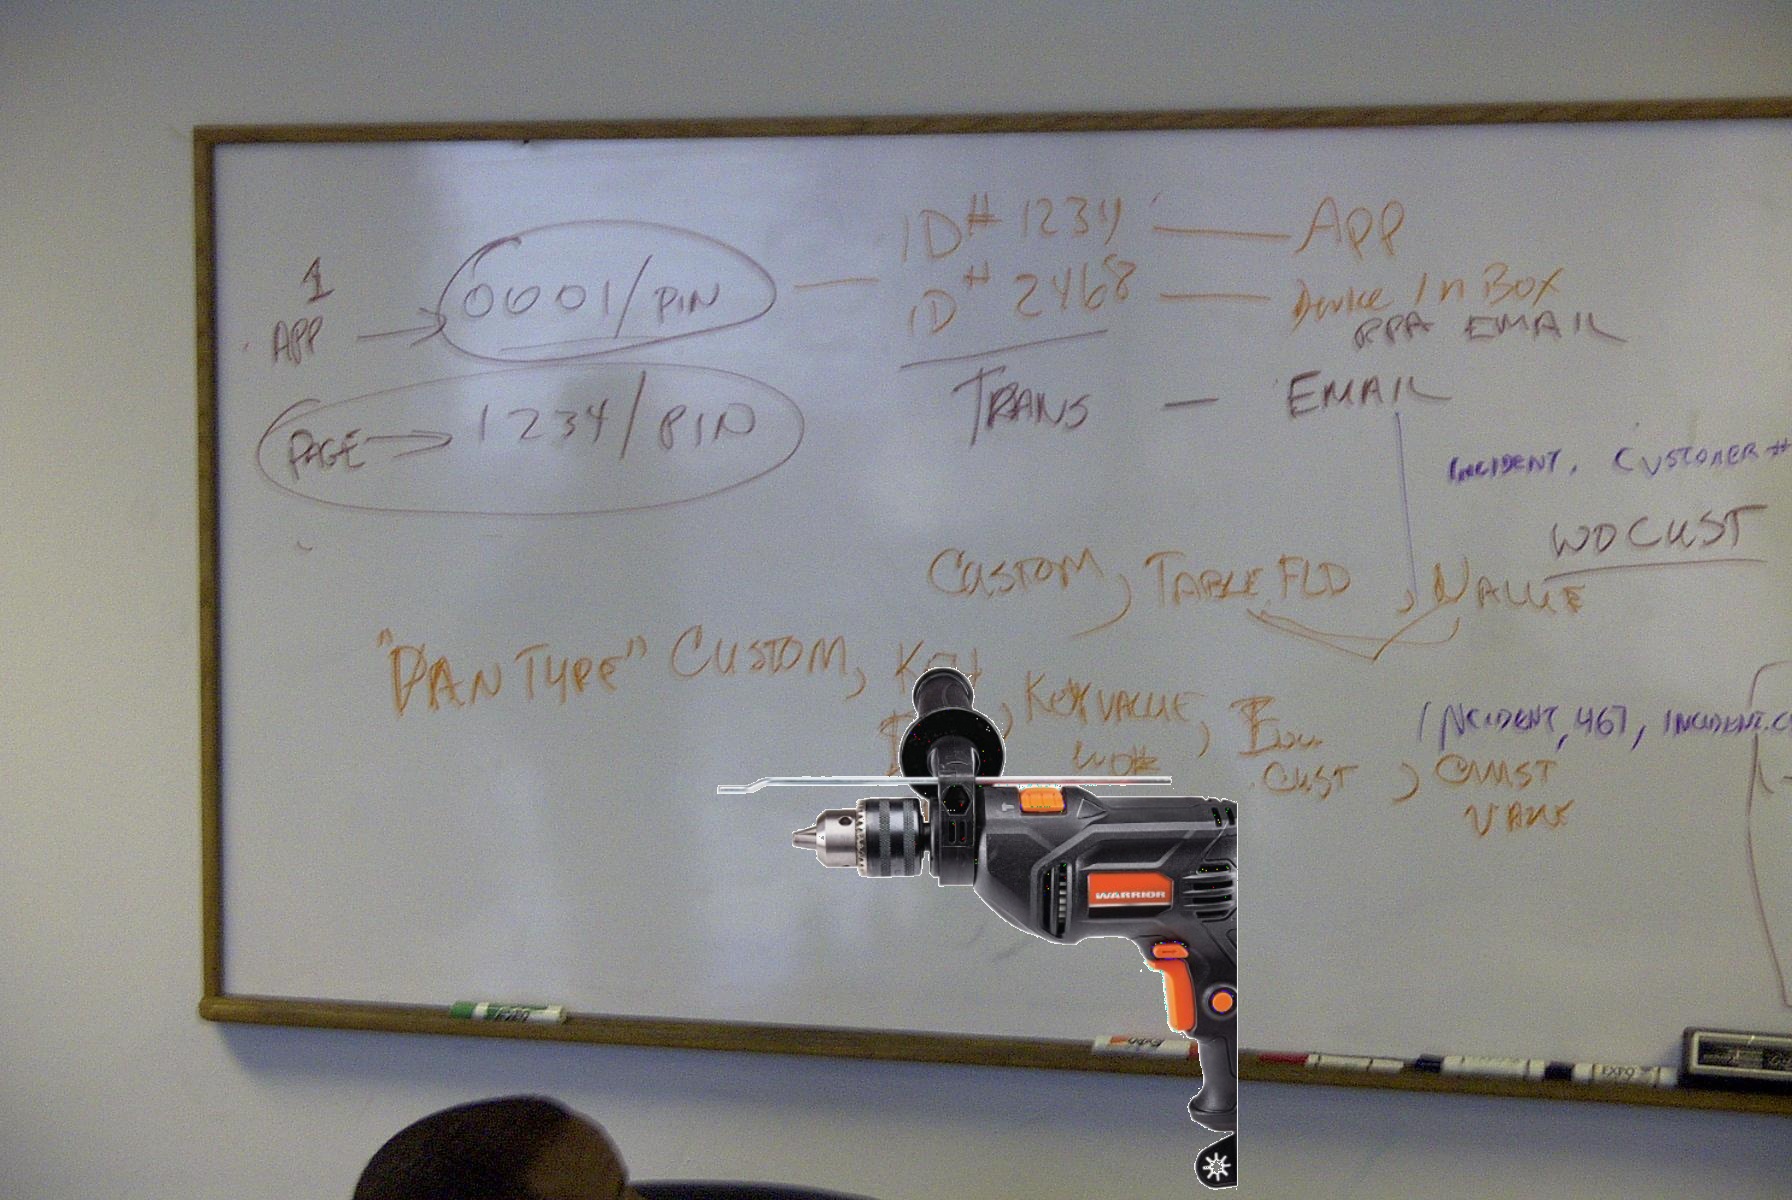 1
APP → 0001/PIN — ID# 1234 — APP
ID# 2468 — Device In Box
RPA EMAIL
PAGE → 1234/PIN
TRANS — EMAIL
INCIDENT, CUSTOMER #
WO CUST
CUSTOM, TABLE FLD, VALUE
"PAN TYPE" CUSTOM,
, KEY VALUE,
WO#
INCIDENT, 467, INCIDENT.C
CUST, CUST
VALUE
WARRIOR
EXPO